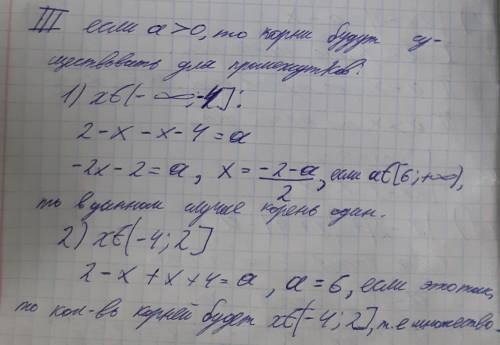 III если a>0, то корни будут су-
ществовать для промежутков:
1) x∈(-∞;-4]:
2-x-x-4=a
-2x-2=a, x=\frac{-2-a}{2}, если a∈[6;+∞),
то в данном случае корень один.
2) x∈(-4;2]
2-x+x+4=a, a=6, если это так,
то кол-во корней будет x∈[-4;2], т.е множество.